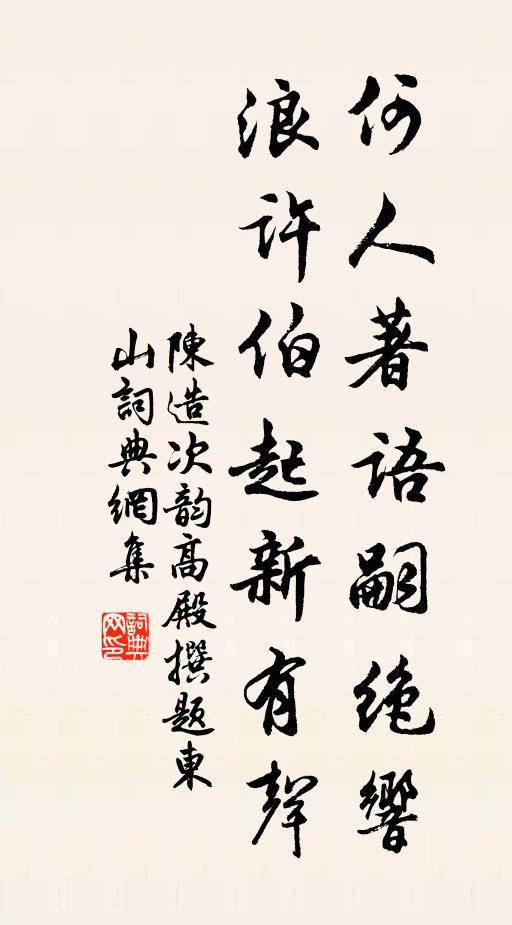 何人著語嗣绝響
浪许伯起新有聲
陳造次韵高殿撰题東
山詞典網集
詞典网印